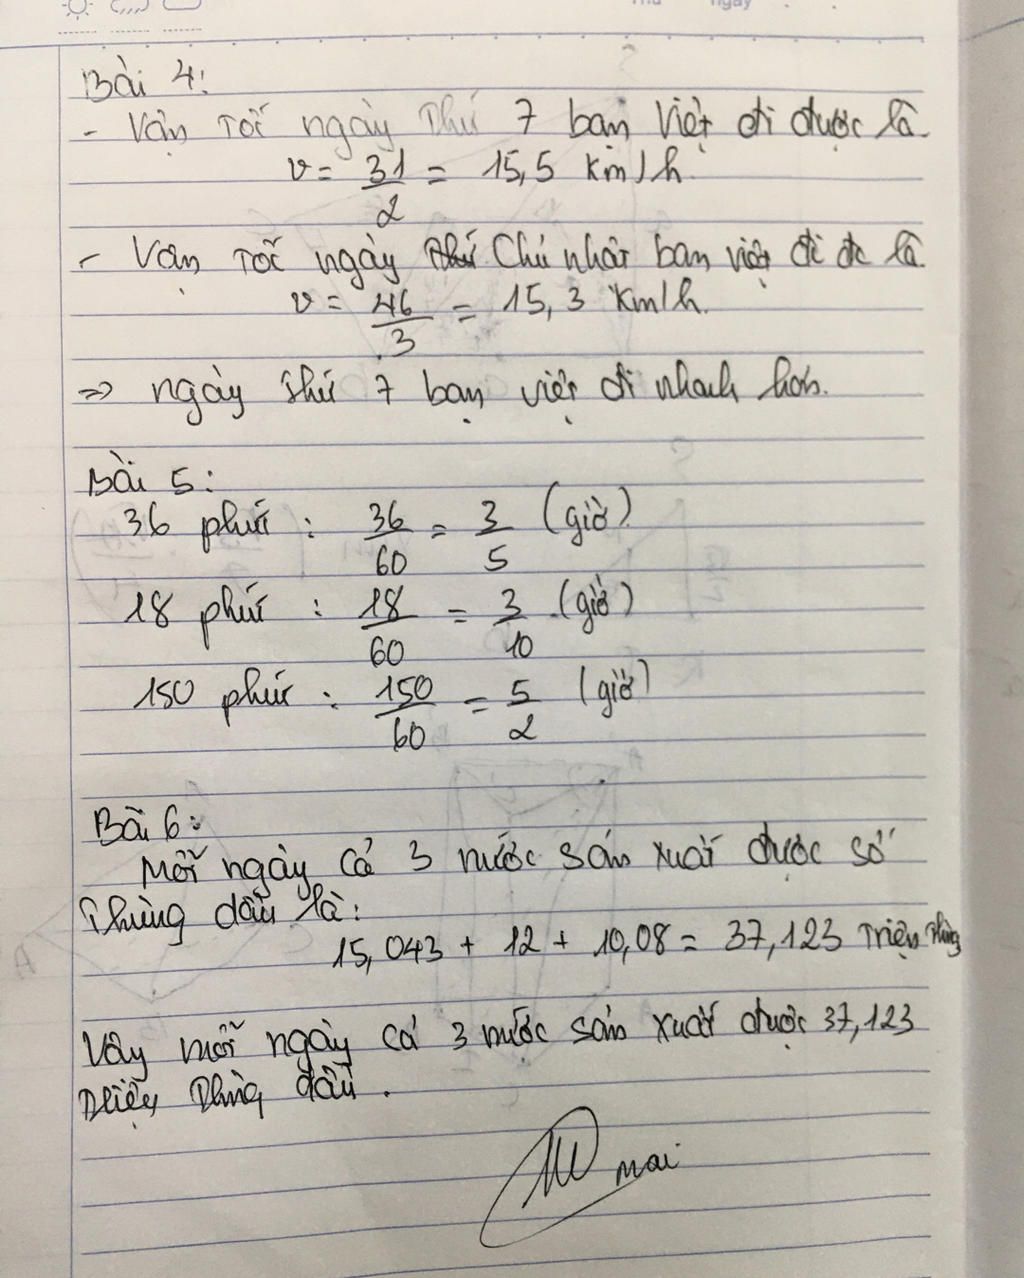 Thứ ngày
Bài 4:
- Vận tốc ngày thứ 7 bạn Việt đi được là
v = 31/2 = 15,5 km/h
- Vận tốc ngày Chủ nhật bạn việt đi đc là
v = 46/3 = 15,3 km/h.
=> ngày thứ 7 bạn việt đi nhanh hơn.
Bài 5:
36 phút : 36/60 = 3/5 (giờ)
18 phút : 18/60 = 3/10 (giờ)
150 phút : 150/60 = 5/2 (giờ)
Bài 6:
Mỗi ngày cả 3 nước sản xuất được số
thùng dầu là:
15,043 + 12 + 10,08 = 37,123 triệu thùng
Vậy mỗi ngày cả 3 nước sản xuất được 37,123
triệu thùng dầu.
Mai